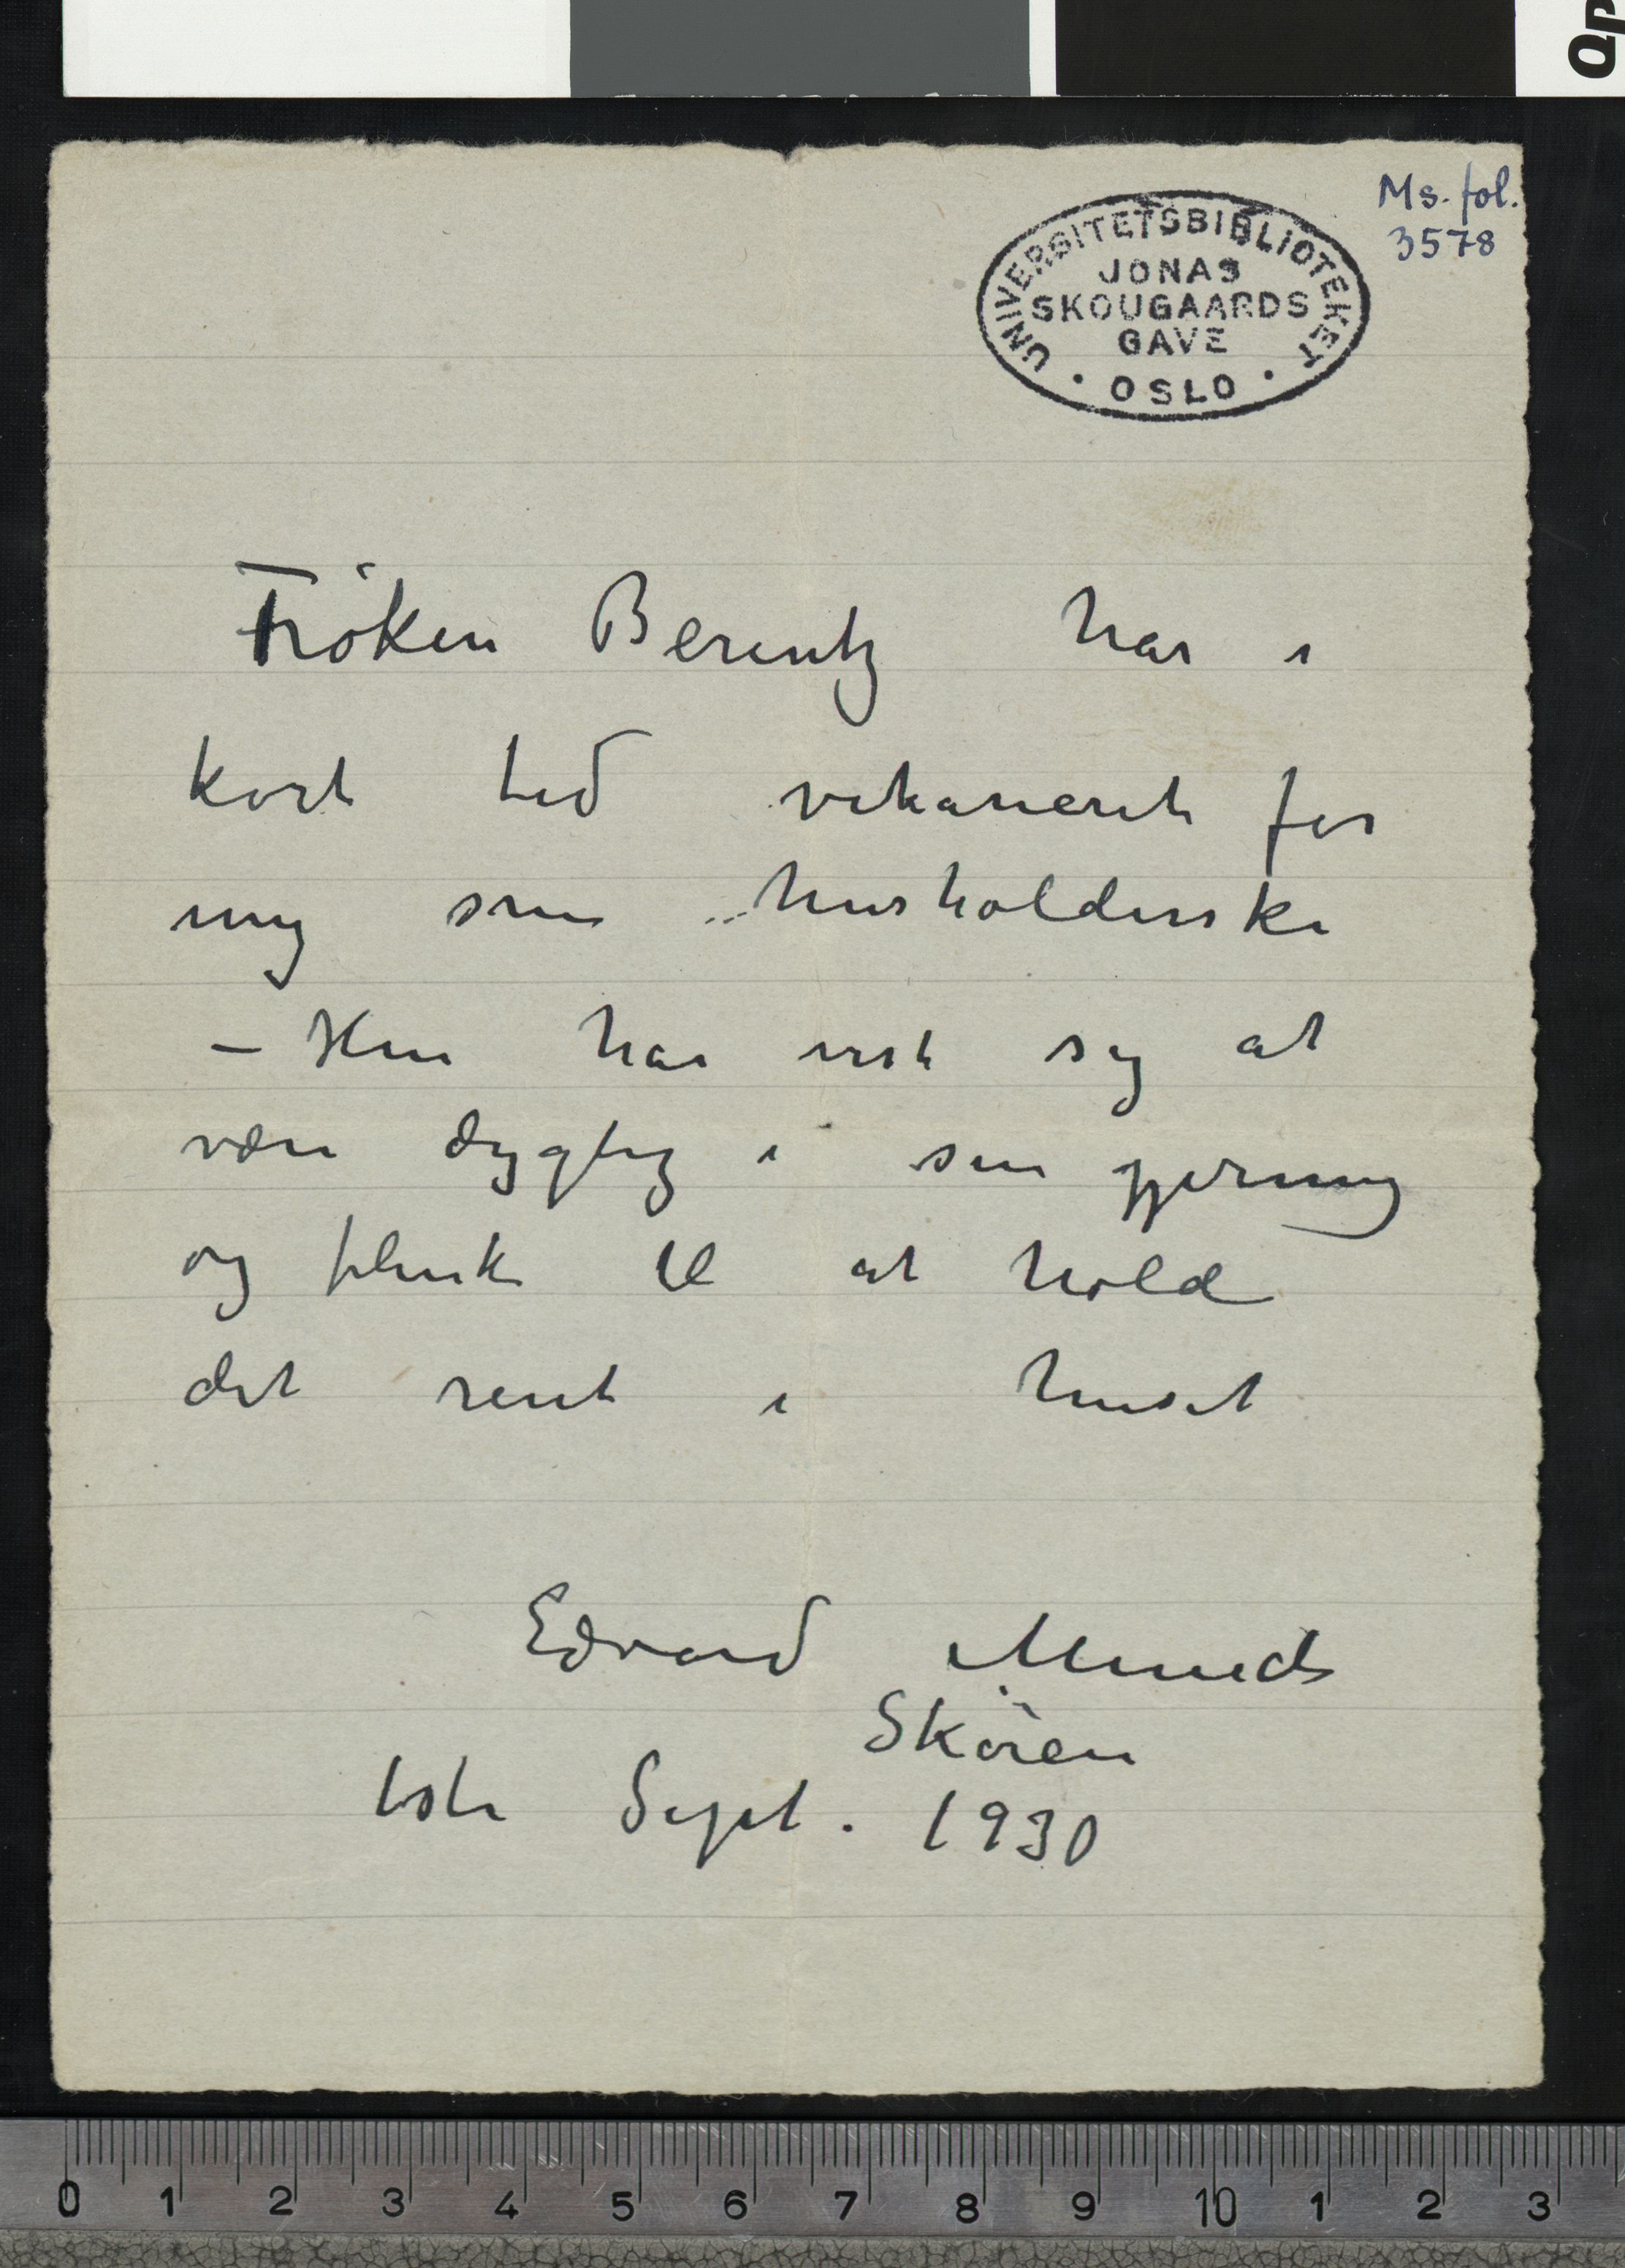 Ms. fol.
3578
UNIVERSITETSBIBLIOTEKET
JONAS
SKOUGAARDS
GAVE
• OSLO •
Fröken Berentz har i
kort tid vikarieret for
mig som husholderske
– Hun har vist sig at
være dygtig i sin gjerning
og flink til at holde
det rent i huset
Edvard Munch
Sköien
1ste Sept. 1930
0 1 2 3 4 5 6 7 8 9 10 1 2 3